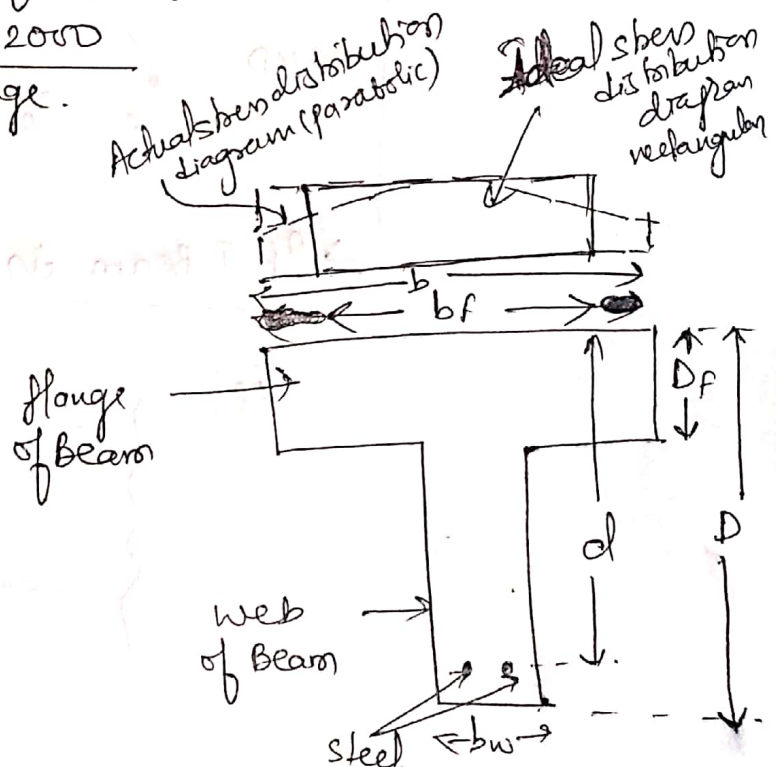 2000
ge.
Actual stress distribution
diagram (parabolic)
Ideal stress
distribution
diagram
rectangular
b
bf
Df
flange
of Beam
d
D
web
of Beam
steel
bw